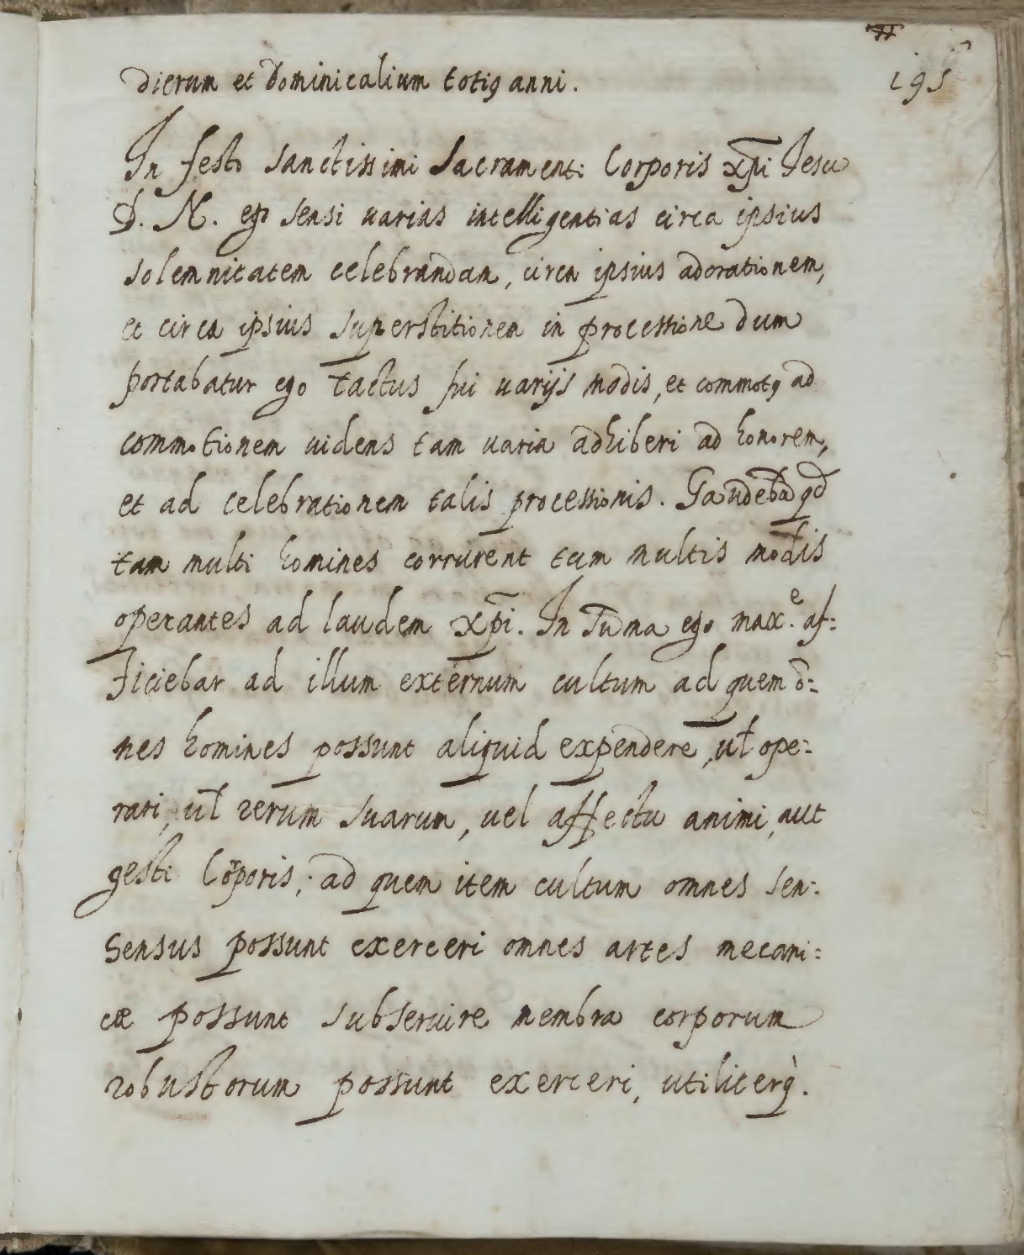 195
dierum et dominicalium totiꝰ anni.
In festo sanctissimi Sacramenti Corporis xp̄i Iesu
D. N. ego sensi varias intelligentias circa ipsius
solemnitatem celebrandam, circa ipsius adorationem,
et circa ipsius superstitionem in processione dum
portabatur ego tactus fui varijs modis, et commotꝰ ad
commotionem uidens tam varia adhiberi ad honorem,
et ad celebrationem talis processionis. Gaudebā qđ
tam multi homines corrurent tum multis modis
operantes ad laudem xp̄i. In Sūma ego maxe. af:
ficiebar ad illum externum cultum ad quem ō:
nes homines possunt aliquid expendere, ul̄ ope:
rari, ul̄ rerum suarum, uel affectu animi, aut
gesti Corporis; ad quem item cultum omnes sen:
sensus possunt exerceri omnes artes mecani:
cæ possunt subseruire membra corporum
robustorum possunt exerceri, utiliterq̀.